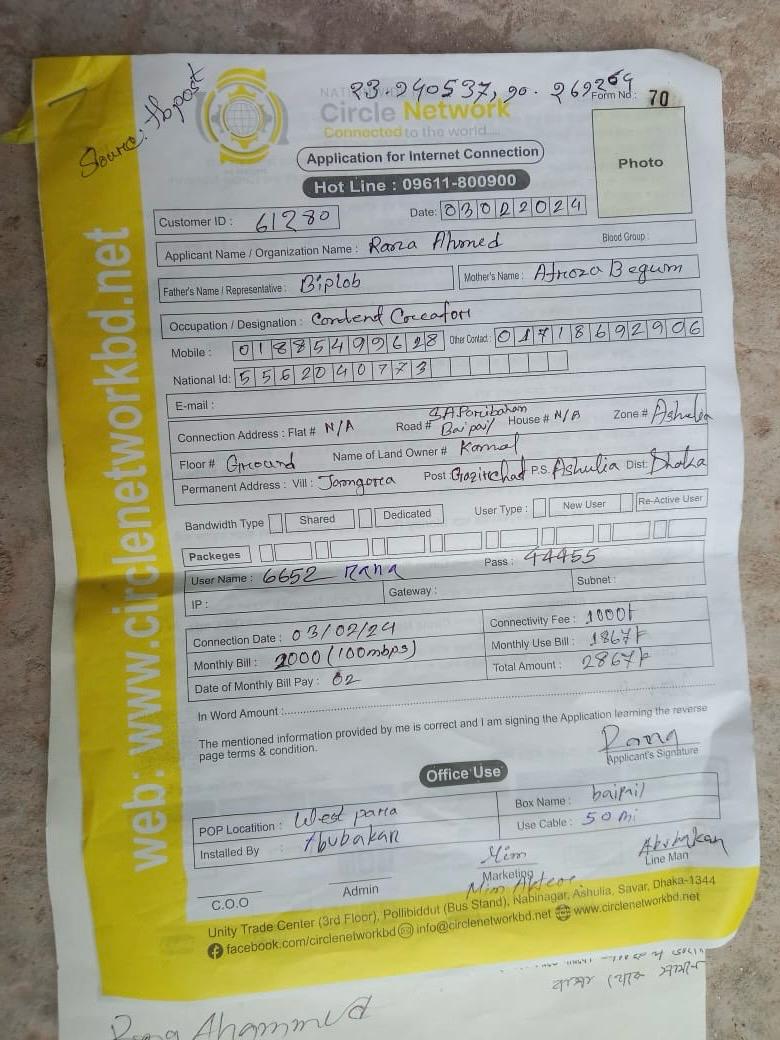 Source: fb post
23.940537, 90.269269
Form No : 70
Circle Network
Connected to the world.....
Application for Internet Connection
Hot Line : 09611-800900
Photo
Customer ID : 61280
Date: 03022024
Applicant Name / Organization Name : Rana Ahmed
Blood Group :
Father's Name / Representative : Biplob
Mother's Name : Afroza Begum
Occupation / Designation :
Mobile : 01885499628
Other Contact : 01718692906
National Id: 5562040773
E-mail :
Connection Address : Flat # N/A Road # S.A Paribahan Baipail House # N/A Zone # Ashulia
Floor # Ground Name of Land Owner # Kamal
Permanent Address : Vill : Post P.S. Ashulia Dist: Dhaka
Bandwidth Type Shared Dedicated User Type : New User Re-Active User
Packeges
User Name : 6652 Rana Pass : 44455
IP : Gateway : Subnet :
Connection Date : 03/02/24
Connectivity Fee : 1000৳
Monthly Bill : 2000 (100mbps)
Monthly Use Bill : 1867৳
Date of Monthly Bill Pay : 02
Total Amount : 2867৳
In Word Amount :
The mentioned information provided by me is correct and I am signing the Application learning the reverse
page terms & condition.
Rana
Applicant's Signature
Office Use
POP Locatition : West para
Box Name : baipil
Installed By : Abubakar
Use Cable : 50 m
Mim
Abubakar
C.O.O Admin Marketing Line Man
Mim Akter
Unity Trade Center (3rd Floor), Pollibiddut (Bus Stand), Nabinagar, Ashulia, Savar, Dhaka-1344
facebook.com/circlenetworkbd info@circlenetworkbd.net www.circlenetworkbd.net
web: www.circlenetworkbd.net
Rana Ahammed